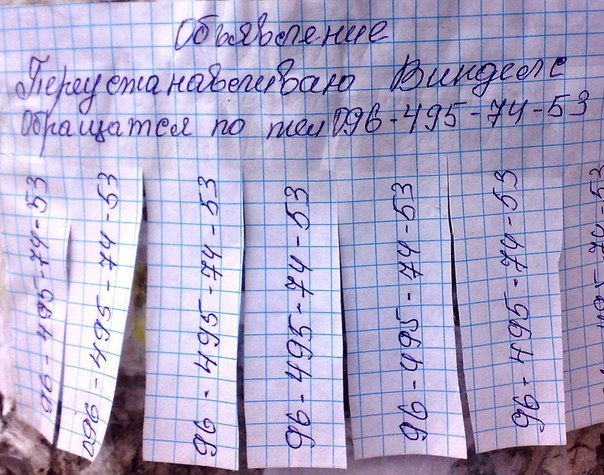 Объявление
Переустанавливаю Виндевс
Обращатся по тел 096-495-74-53
96-495-74-53
096-495-74-53
96-495-74-53
96-495-74-53
96-495-74-53
96-495-74-53
495-74-53